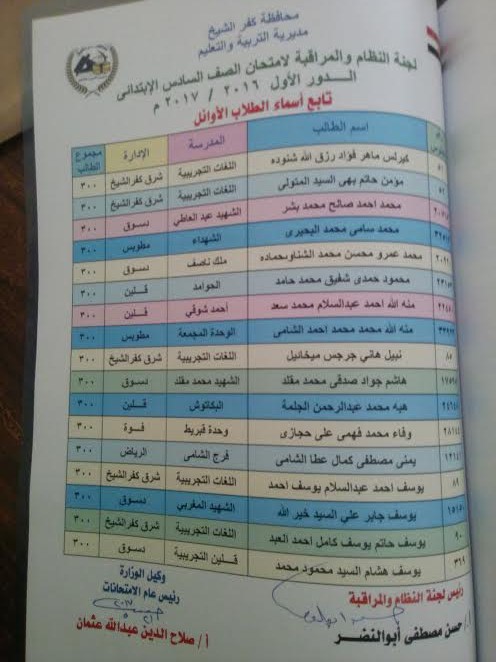 محافظة كفر الشيخ
مديرية التربية والتعليم
لجنة النظام والمراقبة لامتحان الصف السادس الإبتدائى
الدور الأول ٢٠١٦ / ٢٠١٧ م
تابع أسماء الطلاب الأوائل
اسم الطالب المدرسة الإدارة مجموع الطالب
كيرلس ماهر فؤاد رزق الله شنوده اللغات التجريبية شرق كفرالشيخ ٣٠٠
مؤمن حاتم بهى السيد المتولى اللغات التجريبية شرق كفرالشيخ ٣٠٠
محمد احمد صالح محمد بشر الشهيد عبد العاطي دسوق ٣٠٠
محمد سامى محمد البحيرى الشهداء مطوبس ٣٠٠
محمد عمرو محسن محمد الشناوحماده ملك ناصف دسوق ٣٠٠
محمود حمدى شفيق محمد حامد الحوامد قلين ٣٠٠
منه الله احمد عبدالسلام محمد سعد أحمد شوقي قلين ٣٠٠
منه الله محمد محمد احمد الشامى الوحدة المجمعة مطوبس ٣٠٠
٨٥ نبيل هاني جرجس ميخائيل اللغات التجريبية شرق كفرالشيخ ٣٠٠
هاشم جواد صدقى محمد مقلد الشهيد محمد مقلد دسوق ٣٠٠
هبه محمد عبدالرحمن الجلمة البكاتوش قلين ٣٠٠
وفاء محمد فهمى على حجازى وحدة قبريط فوة ٣٠٠
يمنى مصطفى كمال عطا الشامى فرج الشامى الرياض ٣٠٠
٨٩ يوسف احمد عبدالسلام يوسف احمد اللغات التجريبية شرق كفرالشيخ ٣٠٠
يوسف جابر علي السيد خير الله الشهيد المغربي دسوق ٣٠٠
٩٠ يوسف حاتم يوسف كامل احمد العبد اللغات التجريبية شرق كفرالشيخ ٣٠٠
يوسف هشام السيد محمود محمد قلين التجريبية دسوق ٣٠٠
رئيس لجنة النظام والمراقبة
أ/ حسن مصطفى أبوالنضر
وكيل الوزارة
رئيس عام الامتحانات
أ/ صلاح الدين عبدالله عثمان